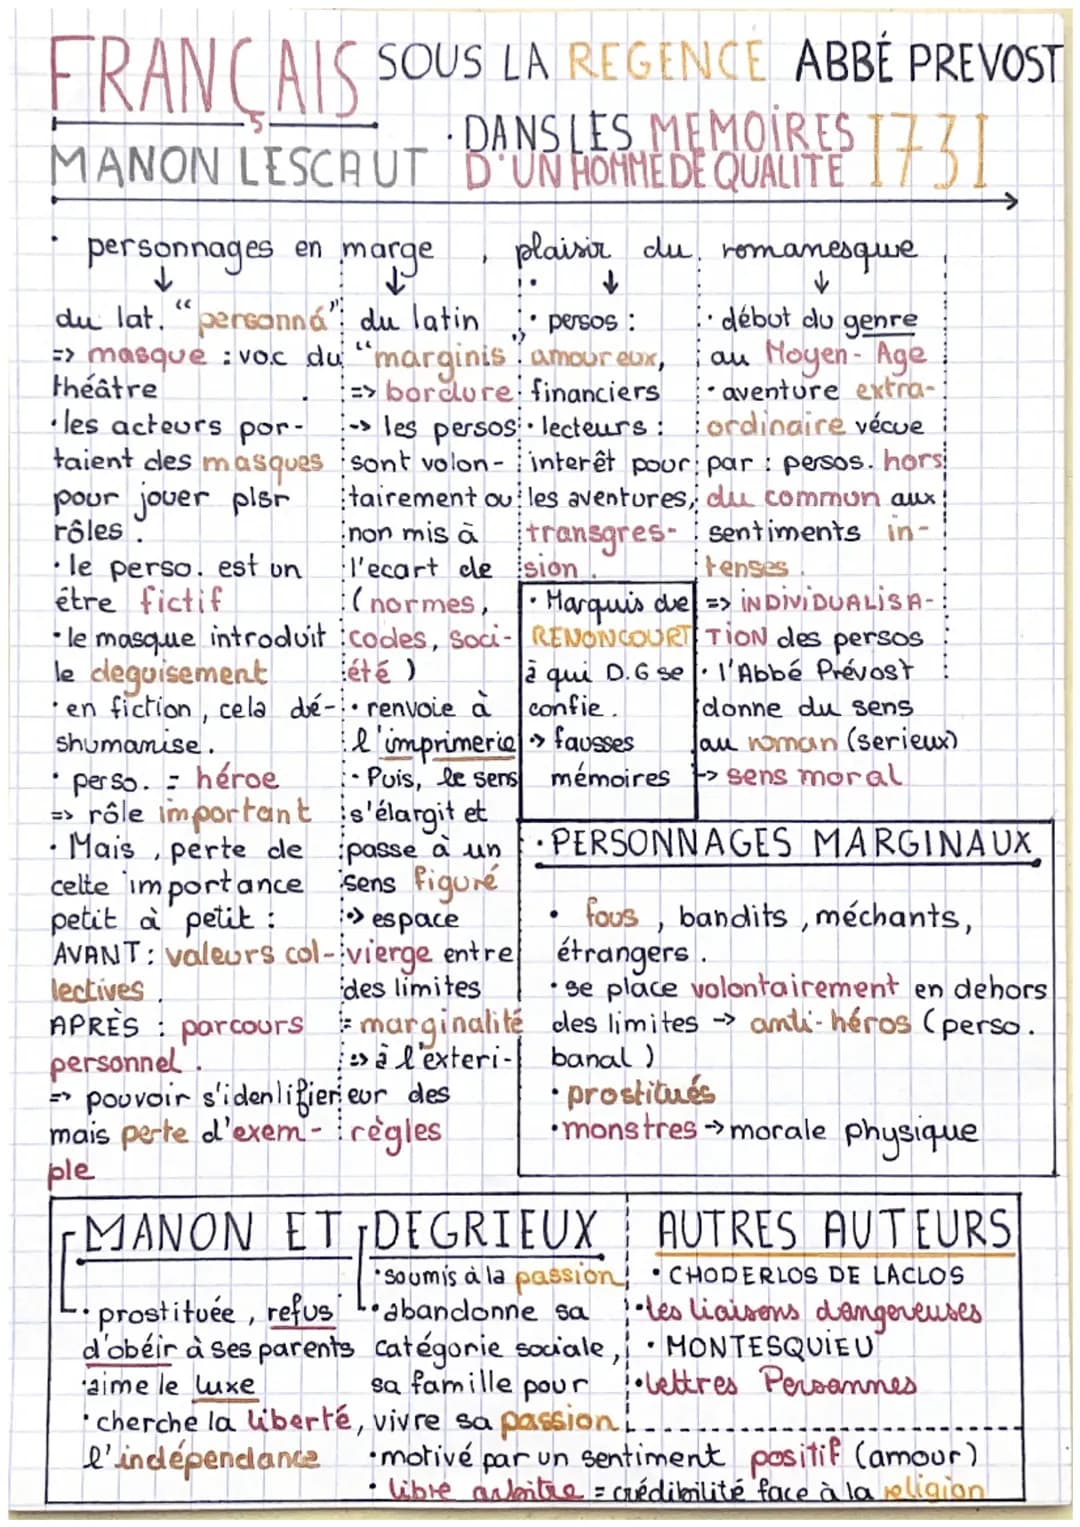 FRANÇAIS SOUS LA REGENCE ABBÉ PREVOST
MANON LESCAUT · DANS LES MEMOIRES D'UN HOMME DE QUALITE 1731
· personnages en marge, plaisir du romanesque
du lat. "personná"
=> masque : voc du
théâtre
· les acteurs por-
taient des masques
pour jouer plsr
rôles.
· le perso. est un
être fictif
· le masque introduit
le deguisement
· en fiction, cela dé-
shumanise.
· perso. = héroe
=> rôle important
· Mais, perte de
cette importance
petit à petit :
AVANT : valeurs col-
lectives.
APRÈS : parcours
personnel.
=> pouvoir s'identifier
mais perte d'exem-
ple
du latin
"marginis"
=> bordure
-> les persos
sont volon-
tairement ou
non mis à
l'ecart de
(normes,
codes, soci-
été)
· renvoie à
l'imprimerie
· Puis, le sens
s'élargit et
passe à un
sens figuré
=> espace
vierge entre
des limites
= marginalité
=> à l'exteri-
eur des
règles
· persos :
amoureux,
financiers
· lecteurs :
interêt pour
les aventures,
transgres-
sion.
· Marquis de
RENONCOURT
à qui D.G se
confie.
-> fausses
mémoires
· début du genre
au Moyen-Age
· aventure extra-
ordinaire vécue
par : persos. hors
du common aux
sentiments in-
tenses.
=> INDIVIDUALISA-
TION des persos
· l'Abbé Prévost
donne du sens
au roman (serieux)
-> sens moral
· PERSONNAGES MARGINAUX
· fous, bandits, méchants,
étrangers.
· se place volontairement en dehors
des limites -> anti-héros (perso.
banal)
· prostitués
· monstres -> morale physique
MANON ET DEGRIEUX
· prostituée, refus
d'obéir à ses parents
· aime le luxe
· cherche la liberté,
l'indépendance
· soumis à la passion
· abandonne sa
catégorie sociale,
sa famille pour
vivre sa passion
· motivé par un sentiment positif (amour)
· libre arbitre = crédibilité face à la religion
AUTRES AUTEURS
· CHODERLOS DE LACLOS
· les liaisons dangereuses
· MONTESQUIEU
· lettres Persannes